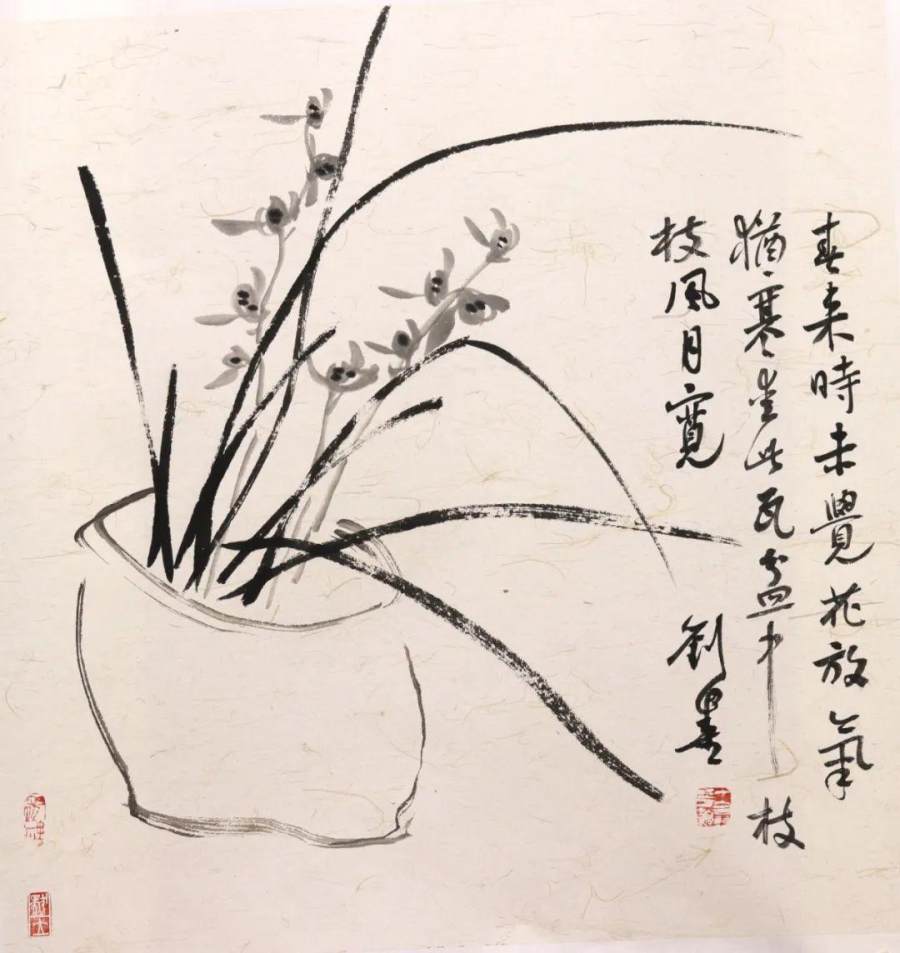 春来時未覺花放氣
猶寒坐此瓦盆中枝
枝風月寬
劉墨